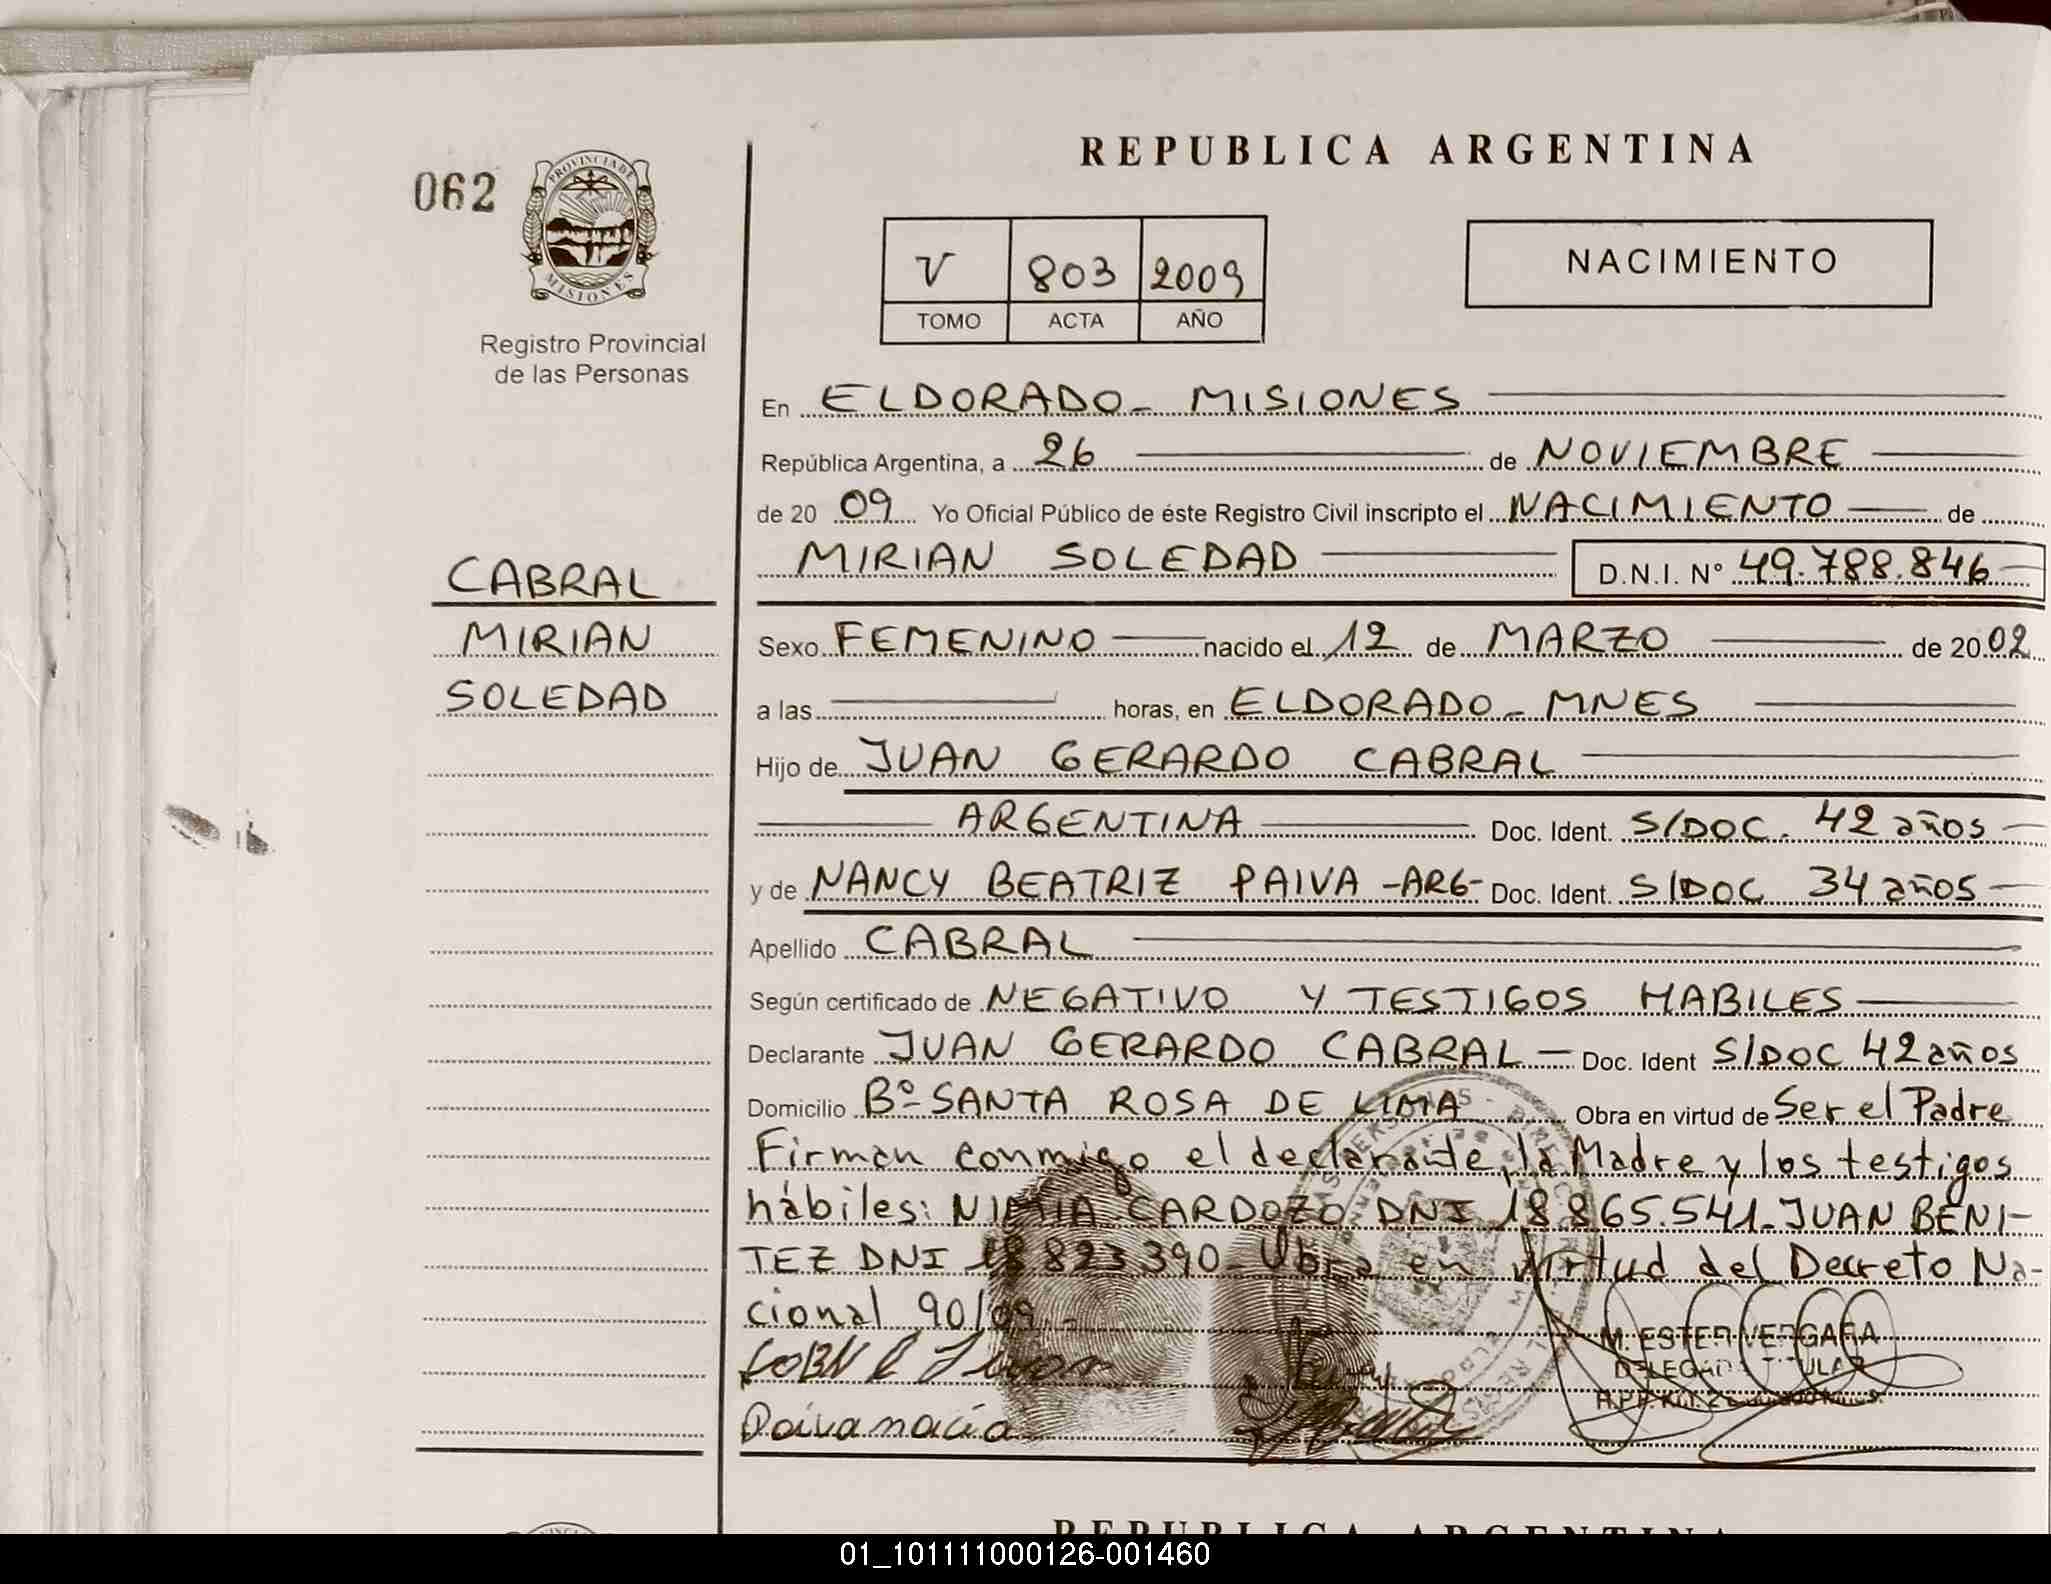 REPUBLICA ARGENTINA
062
PROVINCIA DE
MISIONES
V 803 2009
TOMO ACTA AÑO
NACIMIENTO
Registro Provincial
de las Personas
En ELDORADO - MISIONES
República Argentina, a 26 de NOVIEMBRE
de 20 09 Yo Oficial Público de éste Registro Civil inscripto el NACIMIENTO de
MIRIAN SOLEDAD D.N.I. N° 49.788.846
CABRAL
MIRIAN
SOLEDAD
Sexo FEMENINO nacido el 12 de MARZO de 20 02
a las horas, en ELDORADO - MNES
Hijo de JUAN GERARDO CABRAL
ARGENTINA Doc. Ident. S/DOC. 42 años
y de NANCY BEATRIZ PAIVA -ARG- Doc. Ident. S/DOC 34 años
Apellido CABRAL
Según certificado de NEGATIVO Y TESTIGOS HABILES
Declarante JUAN GERARDO CABRAL Doc. Ident S/DOC 42 años
Domicilio Bº SANTA ROSA DE LIMA Obra en virtud de Ser el Padre
Firman conmigo el declarante, la Madre y los testigos
hábiles: NIMIA CARDOZO DNI 18.865.541. JUAN BENI-
TEZ DNI 18 823 390 - Obra en virtud del Decreto Na-
cional 90/09.-
M. ESTER VERGARA
DELEGADA TITULAR
REPUBLICA ARGENTINA
01_101111000126-001460